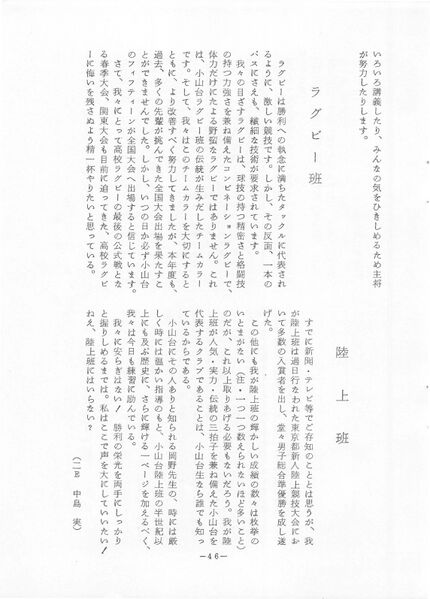 いろいろ講義したり、みんなの気をひきしめるため主将
が努力したりします。
ラグビー班
ラグビーは勝利への執念に満ちたタックルに代表され
るように、激しい競技です。しかし、その反面、一本の
パスにさえも、繊細な技術が要求されています。
我々の目ざすラグビーは、球技の持つ精密さと格闘技
の持つ力強さを兼ね備えたコンビネーションラグビーで、
体力だけにたよる野蛮なラグビーではありません。これ
は、小山台ラグビー班の伝統が生みだしたチームカラー
です。そして、我々はこのチームカラーを大切にすると
ともに、より改善すべく努力してきましたが、本年度も、
過去、多くの先輩が挑んできた全国大会出場を果たすこ
とができませんでした。しかし、いつの日か必ず小山台
のフィフティーンが全国大会へ出場すると信じています。
さて、我々にとって高校ラグビーの最後の公式戦とな
る春季大会、関東大会も目前に迫ってきた。高校ラグビ
ーに悔いを残さぬよう精一杯やりたいと思っている。
陸上班
すでに新聞・テレビ等でご存知のこととは思うが、我
が陸上班は過日行なわれた東京都新人陸上競技大会にお
いて多数の入賞者を出し、堂々男子総合準優勝を成し遂
げた。
この他にも我が陸上班の輝かしい成績の数々は枚挙の
いとまがない(注・一つ一つ数えられないほど多いこと)
のだが、これ以上取りあげる必要もないだろう。我が陸
上班が人気・実力・伝統の三拍子を兼ね備えた小山台を
代表するクラブであることは、小山台生なら誰でも知っ
ているからである。
小山台にその人ありと知られる岡野先生の、時には厳
しく時には温かい指導のもと、小山台陸上班の半世紀以
上にも及ぶ歴史に、さらに輝ける一ページを加えるべく、
我々は今日も練習に励んでいる。
我々に安らぎはない! 勝利の栄光を両手にしっかり
と握りしめるまでは。私はここで声を大にしていいたい!
ねえ、陸上班にはいらない?
(二E 中島 実)
—46—